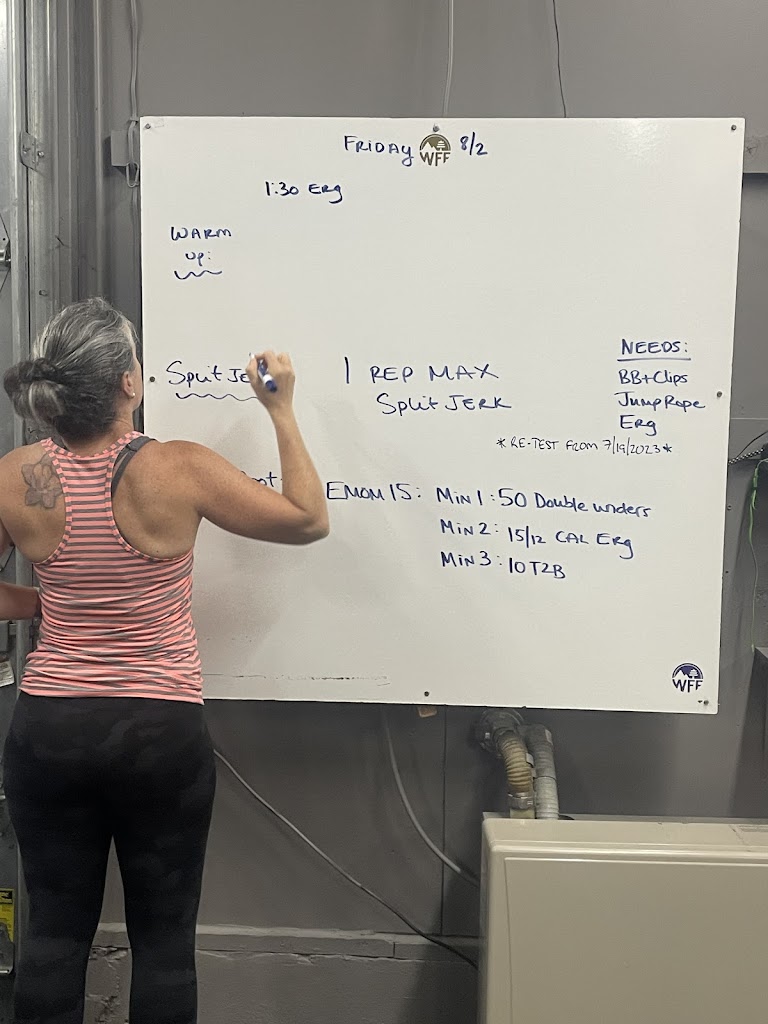 FRIDAY WFF 8/2
1:30 Erg
WARM
UP:
Split JE
1 REP MAX
Split JERK
*RE-TEST FROM 7/19/2023*
NEEDS:
BB+Clips
Jump Rope
Erg
EMOM 15: MIN 1: 50 Double unders
MIN 2: 15/12 CAL Erg
MIN 3: 10 T2B
WFF